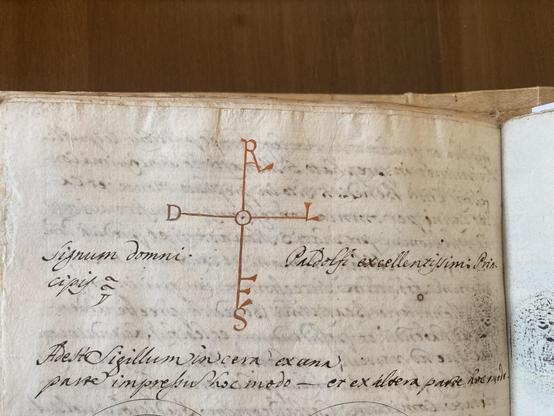 R
D L
F
S
Signum domni Paldolfi excellentissimi Prin
cipis
Adest Sigillum in cera ex una
parte impressu hoc modo — et ex altera parte hoc modo